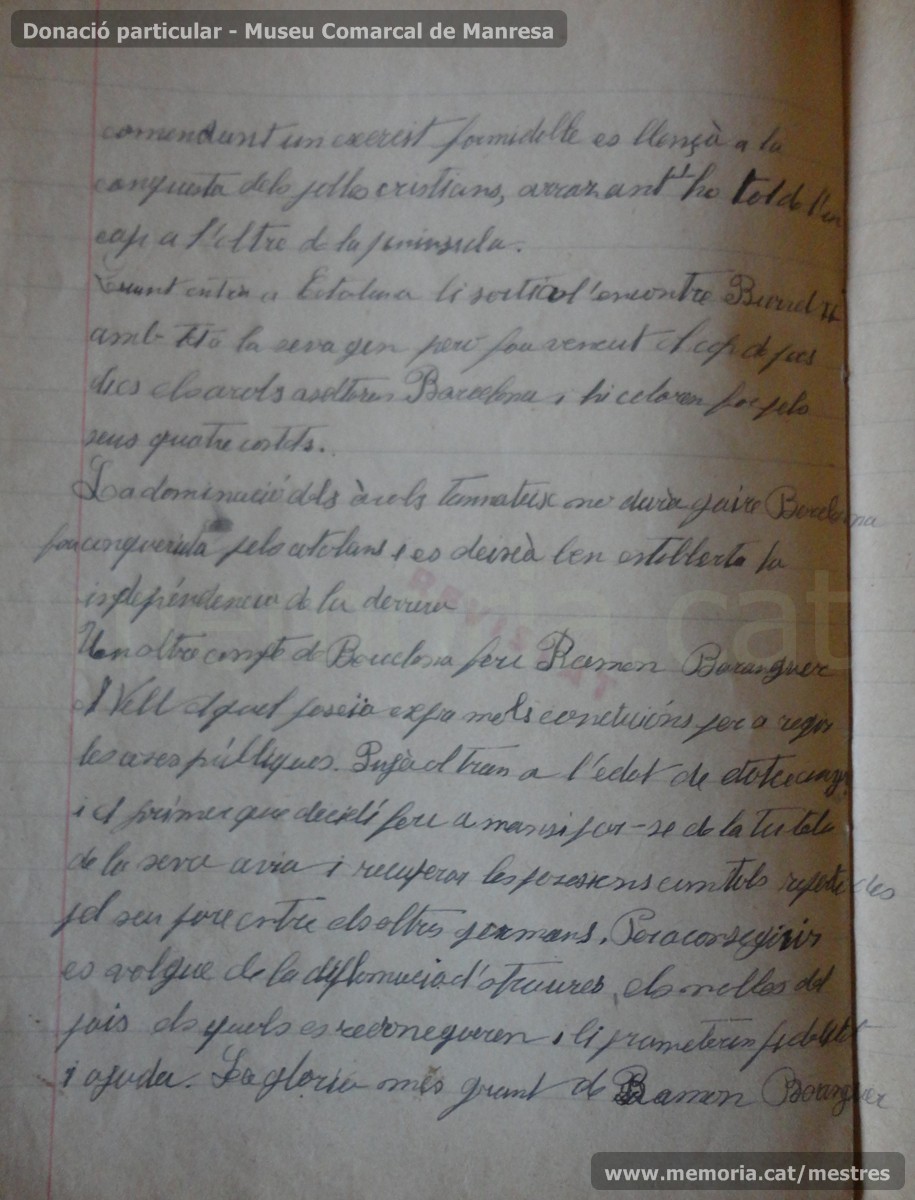 Donació particular - Museu Comarcal de Manresa
comendant un exercit formidable es llençà a la
conquesta dels pobles cristians, arrazant-ho tot de l'un
cap a l'altre de la peninsula.
Quant entra a Cataluna li sortí a l'encontre Burrel II
amb tota la seva gen però fou vencut al cap de pocs
dies els arabs asaltaren Barcelona i hi calaren foc pels
seus quatre costats.
La dominació dels àrabs tanmateix no durà gaire Barcelona
fou conquerida pels catalans i es deixà ben establerta la
independencia de la
Un altre compte de Barcelona fou Ramon Baranguer
el Vell el quel poseia condicións per a regir
les coses públiques. Pujà al tron a l'edat de dotce anys
i el primer que decidí fou amansipar-se de la tutela
de la seva avia i recuperar les posesions comtals repartides
pel seu pare entre els altres germans. Per aconseguir
es volgue de la diplomacia els nobles del
pais els quals es i li prometeren fidelitat
i ajuda. La gloria més grant de Ramon Baranguer
REVIZADA
memoria.cat
www.memoria.cat/mestres